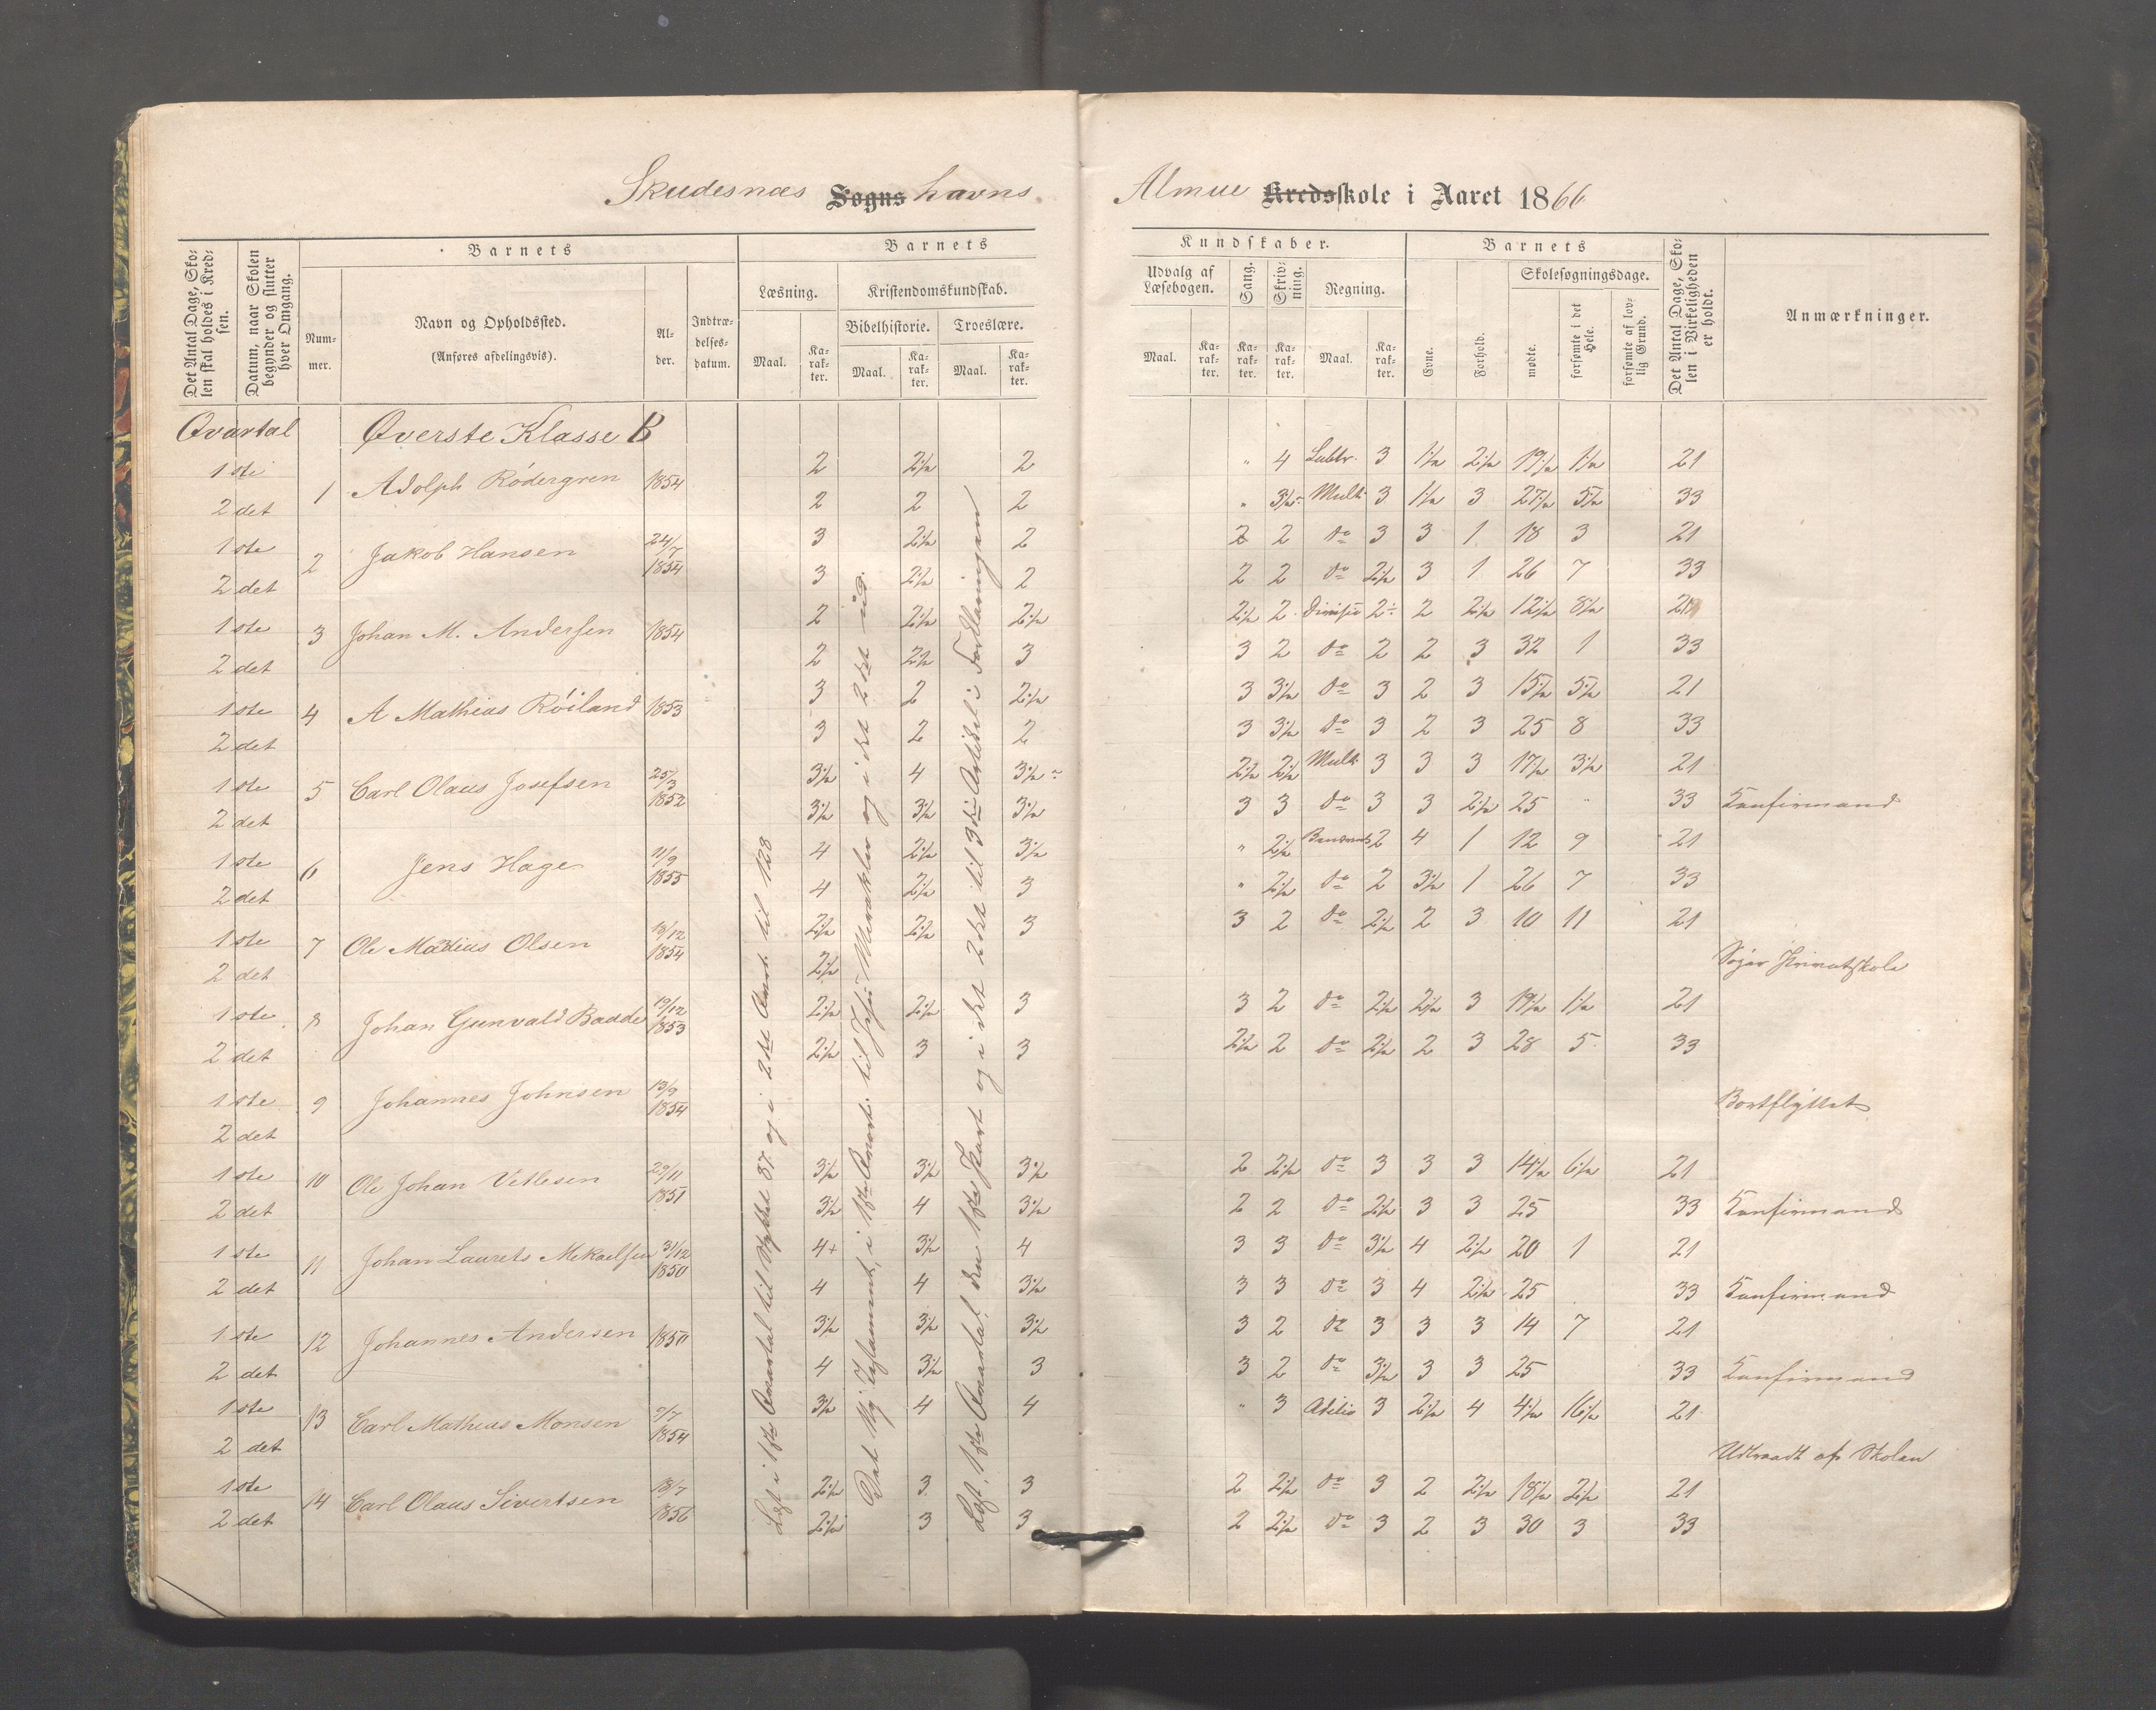 Skudesnæs Sogns havns
Almue Kredsskole i Aaret 1866
Det Antal Dage, Skolen skal holdes i Kredsen.
Datum, naar Skolen begynder og slutter hver Omgang.
Barnets
Nummer.
Navn og Opholdssted.
(Anføres afdelingsvis).
Alder.
Indtrædelsesdatum.
Barnets
Læsning.
Maal.
Karakter.
Kristendomskundskab.
Bibelhistorie.
Maal.
Karakter.
Troeslære.
Maal.
Karakter.
Kundskaber.
Udvalg af Læsebogen.
Maal.
Karakter.
Sang.
Karakter.
Skrivning.
Karakter.
Regning.
Maal.
Karakter.
Barnets
Evne.
Forhold.
Skolesøgningsdage.
mødte.
forsømte i det Hele.
forsømte af lovlig Grund.
Det Antal Dage, Skolen i Virkeligheden er holdt.
Anmærkninger.
Qvartal Øverste Klasse B
1ste 1 Adolph Rödergren 1854 2 2½ 2 " 4 Subtr. 3 1½ 2½ 19½ 1½ 21
2det 2 2 2 " 3½ Multi 3 1½ 3 27½ 5½ 33
1ste 2 Jakob Hansen 24/7 1854 3 2½ 2 2 2 do 3 3 1 18 3 21
2det 3 2½ 2 2 2 do 2½ 3 1 26 7 33
1ste 3 Johan M. Andersen 1854 2 2½ 2½ 2½ 2 Divisio 2 2 2½ 12½ 8½ 21
2det 2 2½ 3 3 2 do 2 2 3 32 1 33
1ste 4 A Mathias Röiland 1853 3 2 2½ 3 3½ do 3 2 3 15½ 5½ 21
2det 3 2 2 3 3½ do 3 2 3 25 8 33
1ste 5 Carl Olaus Josefsen 25/3 1852 3½ 4 3½ 2½ 2½ Multi 3 3 3 17½ 3½ 21
2det 3½ 3½ 3½ 3 3 do 3 3 2½ 25 " 33 Konfirmand
1ste 6 Jens Hage 11/9 1855 4 2½ 3½ " 2½ 2 4 1 12 9 21
2det 4 2½ 3 " 2½ do 2 3½ 1 26 7 33
1ste 7 Ole Madius Olsen 13/12 1854 2½ 2½ 3 3 2 do 2½ 2 3 10 11 21
2det 2½ Søger Privatskole
1ste 8 Johan Gunvald Badde 19/12 1853 2½ 2½ 3 3 2 do 2½ 2½ 3 19½ 1½ 21
2det 2½ 3 3 2½ 2 do 2½ 2 3 28 5 33
1ste 9 Johannes Johnsen 13/9 1854 Bortflyttet
2det
1ste 10 Ole Johan Vetlesen 29/11 1851 3½ 3½ 3½ 2 2½ do 3 3 3 14½ 6½ 21
2det 3½ 4 3½ 2 2 do 2½ 3 3 25 33 Konfirmand
1ste 11 Johan Laurets Mekaelsen 31/12 1850 4+ 3½ 4 3 3 do 3½ 4 2½ 20 1 21
2det 4 4 3½ 3 3 do 3 4 2½ 25 33 Konfirmand
1ste 12 Johannes Andersen 3½ 3½ 3½ 3 2 do 3 3 3 14 7 21
2det 4 3½ 3 3 2 do 3½ 3 3 25 33 Konfirmand
1ste 13 Carl Mathias Monsen 2/7 1854 3½ 4 4 " 3 3 2½ 4 4½ 16½ 21
2det Udtraadt af Skolen
1ste 14 Carl Olaus Sivertsen 18/7 1856 2½ 3 3 2 2½ do 3 2 2½ 18½ 2½ 21
2det 2½ 3 3 2 2½ do 3 2 3 30 3 33
Læst i 1ste Qvartal til Stykket 87 og i 2det Qvart. til 128
Det Ny Testament, i 1ste Qvart. til Jesu Mirakler og i det 2det
Læst i 1ste Qvartal den 1ste Part og i det 2det til 3die Artikel i Forklaringen